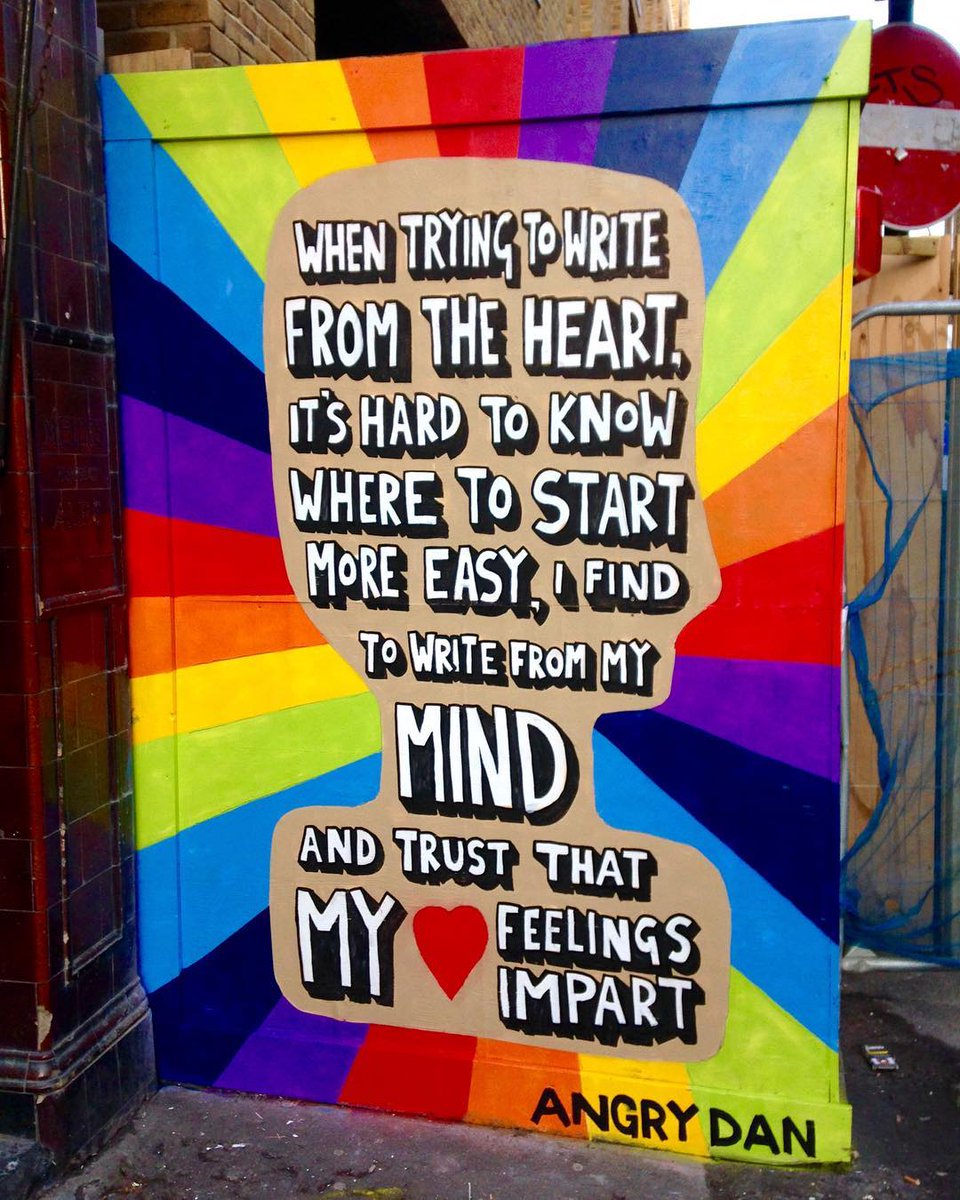 WHEN TRYING TO WRITE
FROM THE HEART,
IT'S HARD TO KNOW
WHERE TO START
MORE EASY, I FIND
TO WRITE FROM MY
MIND
AND TRUST THAT
MY ❤ FEELINGS
IMPART
ANGRY DAN